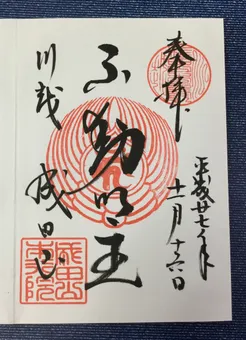 奉拝
平成廿七年
十一月十六日
不動明王
川越
成田山
成田山
本行院